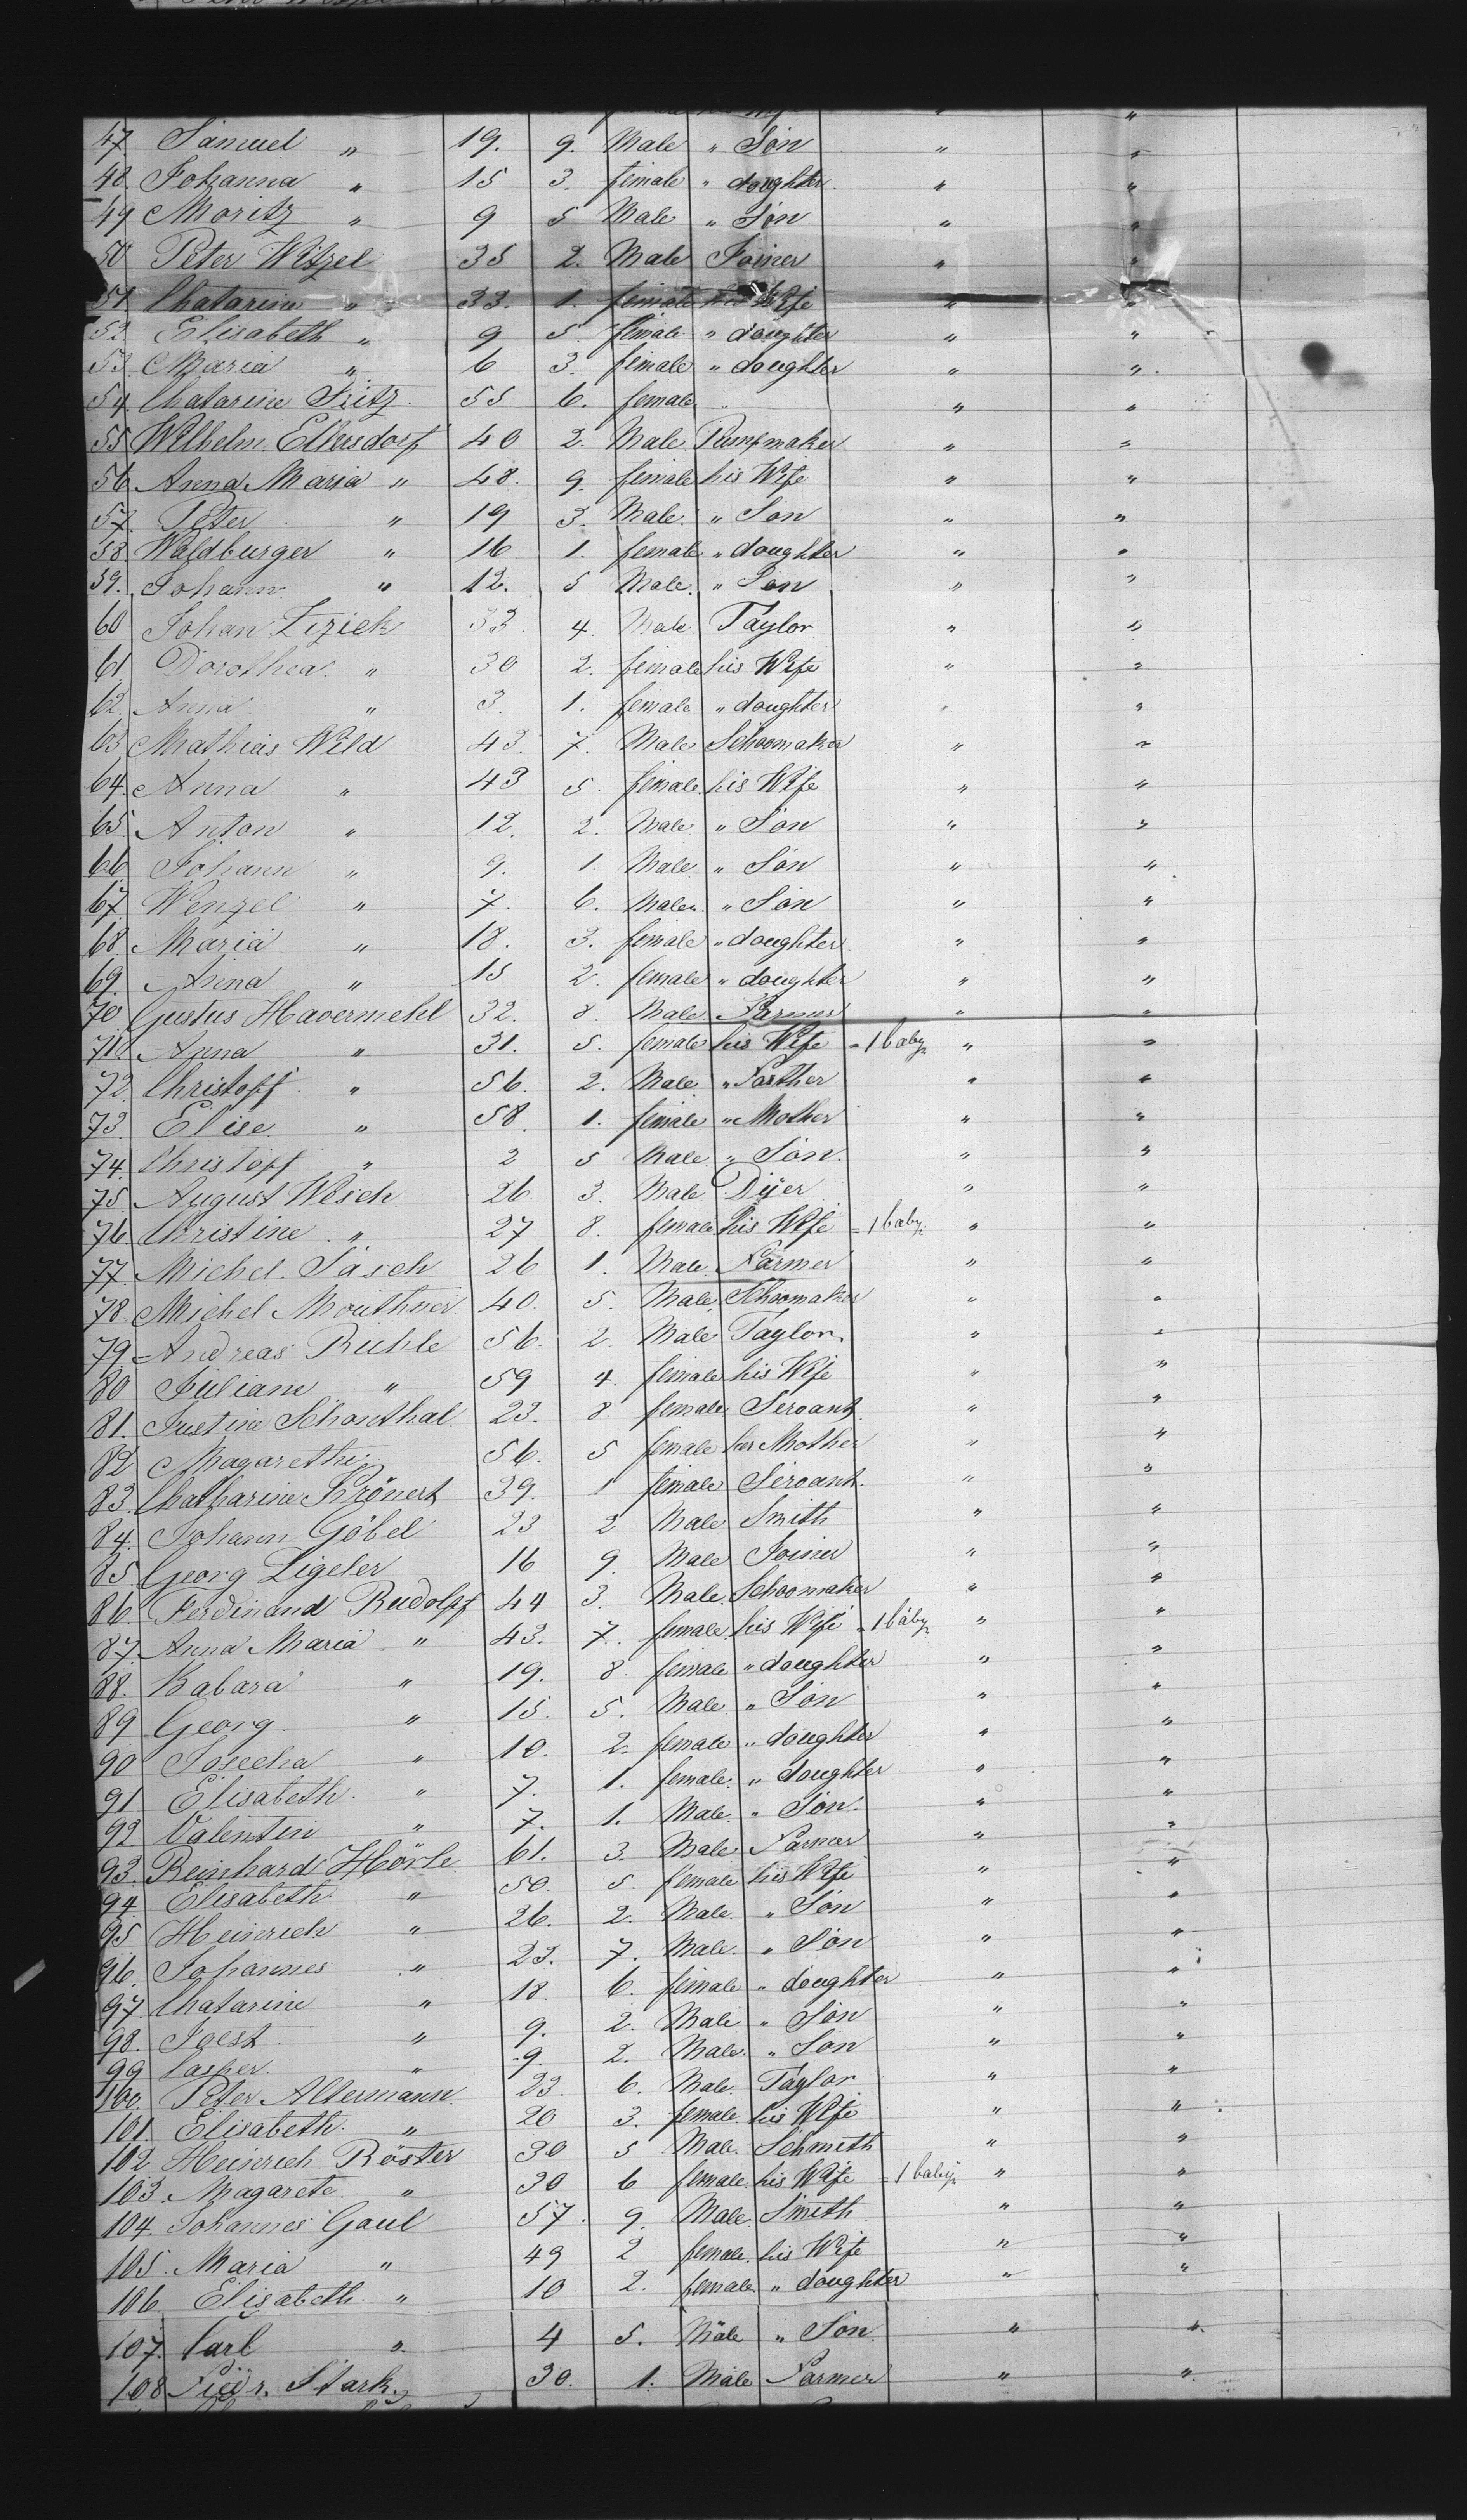 47 Samuel " 19. 9. Male " Son " "
48 Johanna " 15 3. female " doughter " "
49 Moritz " 9 5 Male " Son " "
50 Peter Witzel 35 2. Male Joiner " "
51. Chatarina " 33. 1. female his Wife " "
52. Elisabeth " 9 5 female " doughter " "
53 Maria " 6 3. female " doughter " "
54. Chatarine Fritz 55 6. female " "
55 Wilhelm Ellersdorf 40 2. Male Pumpmaker " "
56 Anna Maria " 48. 9. female his Wife " "
57 Peter " 19 3. Male " Son " "
58. Waldburger " 16 1. female " doughter " "
59. Johann " 12. 5 Male. " Son " "
60 Johan 33 4. Male Taylor " "
61. Dorothea " 30 2. female his Wife " "
62. Anna " 3. 1. female " doughter " "
63 Mathias Wild 43. 7. Male Schoomaker " "
64. Anna " 43 5. female his Wife " "
65. Anton " 12. 2. Male " Son " "
66 Johann " 9. 1. Male " Son " "
67 Wenzel " 7. 6. Male " Son " "
68. Maria " 18. 3. female " doughter " "
69. Anna " 15 2. female " doughter " "
70 Gustus Havermehl 32. 8. Male Farmer " "
71. Anna " 31. 5. female his Wife = 1 baby " "
72. Christoff " 56. 2. Male " Farther " "
73. Elise " 58. 1. female " Mother " "
74. Christoff " 2 5 Male " Son. " "
75. August Wesch 26. 3. Male Dijer " "
76. Christine " 27 8. female his Wife = 1 baby " "
77. Michel Säsch 26 1. Male Farmer " "
78. Michel Mouthner 40. 5. Male Schoomaker " "
79. Andreas Ruhle 56. 2. Male Taylor. " "
80 Juliane " 59 4. female his Wife " "
81. Justine Schonthal 23. 8. female Servant " "
82 Magarethe 56. 5 female her Mother " "
83. Chatharine Krönert 39. 1 female Servant. " "
84. Johann Göbel 23 2 Male Smith " "
85. Georg Ligeler 16 9. Male Joiner " "
86. Ferdinand Rudolpf 44 3. Male Schoomaker " "
87. Anna Maria " 43. 7. female his Wife = 1 baby " "
88. Babara " 19. 8. female " doughter " "
89 Georg " 15. 5. Male " Son " "
90 Josecha " 10. 2. female " doughter " "
91 Elisabeth " 7. 1. female " doughter " "
92 Valentin " 7. 1. Male " Son. " "
93. Reinhard Hörle 61. 3. Male Farmer " "
94. Elisabeth " 50. 5. female his Wife " "
95 Heinrich " 26. 2. Male " Son " "
96. Johannes " 23. 7. Male " Son " "
97. Chatarine " 18. 6. female " doughter " "
98. Joest " 9. 2. Male " Son " "
99 Casper " 9. 2. Male " Son " "
100. Peter Altermann 23. 6. Male Taylor " "
101. Elisabeth " 20 3. female his Wife " "
102 Heinrich Röster 30 5 Male Schmith " "
103. Magarete " 30 6 female his Wife = 1 baby " "
104. Johannes Gaul 57. 9. Male Smith " "
105. Maria " 49 2 female his Wife " "
106. Elisabeth " 10 2. female " doughter " "
107. Carl " 4 5. Male " Son " "
108 Friedr. Stark 30. 1. Male Farmer " "